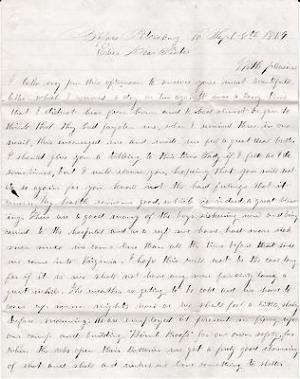 Before Petersburg Va Sept 8th 1864
Ever Dear Sister
With pleasure
I take my pen this afternoon to answer your most
letter which I received a day or two ago. It was a long time
that I did not hear from home and I had almost began to
think that they had forgotten me, when I received three in one
mail, this encouraged me and made me feel a great deal better
I should give you a to this time Sady if I felt as I do
sometimes, but I will excuse you, hoping that you will not
do it again for you know not the bad feelings that it
My health remains good, which is indeed a great
There are a good many of the boys sickening now and being
carried to the hospital and as a we have had more sick
men since we came here than all the time before that since
we came into Virginia. I hope this will not be the case long
for if it is we shall not have any men for duty long a
great while. The weather is getting to be cold and we have to
cover up warm nights now or we shall feel a little chilly
before morning. We are employed at present in fixing up
our camp and building "Bomb Proofs" for our own safety, for
when the rebs open their batteries we get a pretty good showering
of shot and shell and makes us hunt something to shelter